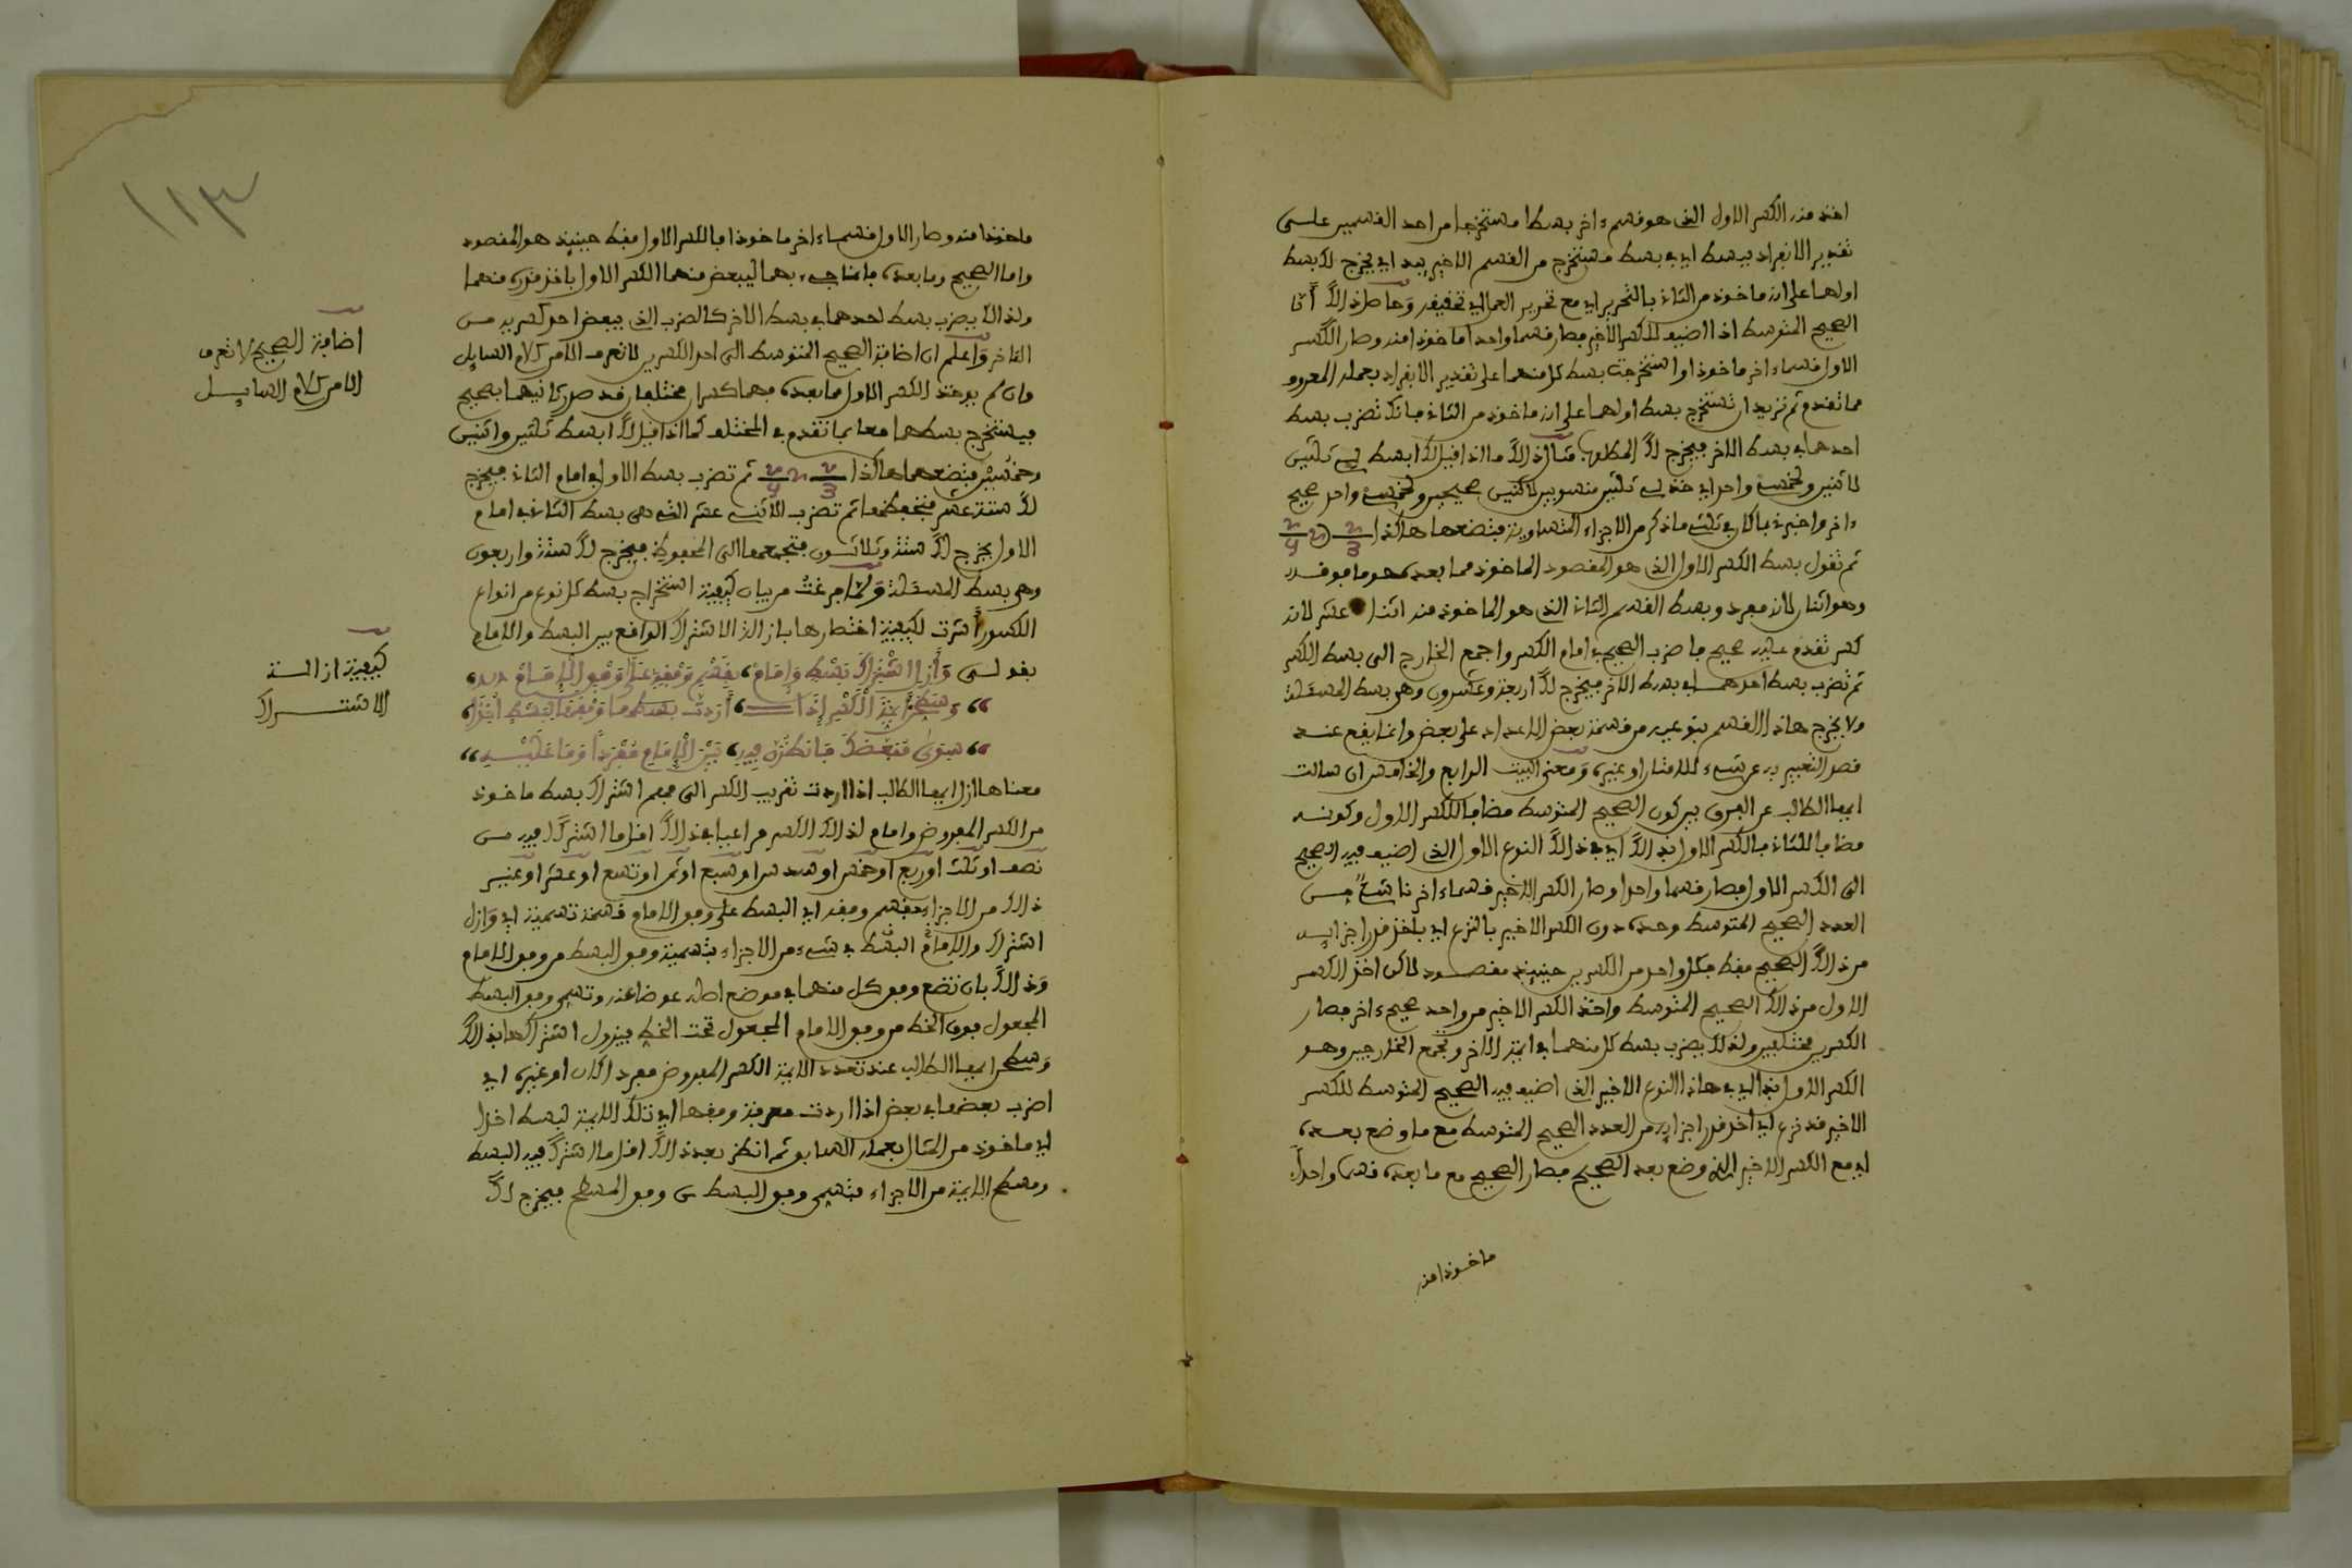 اخذ منه الكسر الاول الذى هو قسم ءاخر بسطا مستخرجا من احد القسمين على
تقدير الانفراد ببسط اي في بسط مستخرج من القسم الاخير بيد اي يخرج لك بسط
اولهما على انه ماخوذ من الثانى بالتحرير اي مع تحرير العمل اي تحقيقه وحاصل ذلك ان
الصحيح المتوسط اذا اضيف للكسر الاخير فصار قسما واحدا ماخوذا منه وصار الكسر
الاول قسما ءاخر ماخوذا واستخرجت بسط كل منهما على تقدير الانفراد بعمله المعروف
مما تقدم ثم تريد ان تستخرج بسط اولهما على انه ماخوذ من الثانى فانك تضرب بسط
احدهما في بسط الاخر فيخرج لك المطلوب مثال ذلك ما اذا قيل لك ابسط لي ثلثي
لاثنين وخمسي واحد اي خذ لي ثلثين منسوبين لاثنين صحيحين وخمسي واحد صحيح
ءاخر واخبرنى بما كان في ثلثي ما ذكر من الاجزاء المتساوية فتضعهما هاكذا ٢/3 2 ٢/5
ثم تقول بسط الكسر الاول الذى هو المقصود الماخوذ مما بعده هو ما فوقه
وهو اثنان لانه مفرد وبسط القسم الثانى الذى هو الماخوذ منه اثنا عشر لانه
كسر تقدم عليه صحيح فاضرب الصحيح في امام الكسر واجمع الخارج الى بسط الكسر
ثم تضرب بسط احدهما في بسط الاخر فيخرج لك اربعة وعشرون وهي بسط المسئلة
ولا يخرج هاذا القسم بنوعيه من قسمة بعض الاعداد على بعض وانما يقع عند
قصد التعبير به عن شيء للامتحان او غيره ومعنى البيت الرابع والخامس ان سالت
ايها الطالب عن الفرق بين كون الصحيح المتوسط مضافا للكسر الاول وكونه
مضافا للثانى فالكسر الاول بذاك اي في ذلك النوع الاول الذى اضيف فيه الصحيح
الى الكسر الاول فصار قسما واحدا وصار الكسر الاخير قسما ءاخر ناشئ من
العدد الصحيح المتوسط وحده دون الكسر الاخير بالنزع اي باخذ قدر اجزايه
من ذلك الصحيح فقط فكل واحد من الكسرين حينيذ مقصود لاكن اخذ الكسر
الاول من ذلك الصحيح المتوسط واخذ الكسر الاخير من واحد صحيح ءاخر فصار
الكسرين مختلفين ولذلك يضرب بسط كل منهما في ايمة الاخر وتجمع الخارجين وهو
الكسر الاول بذا اي في هاذا النوع الاخير الذى اضيف فيه الصحيح المتوسط للكسر
الاخير قد نزع اي اخذ قدر اجزايه من العدد الصحيح المتوسط مع ما وضع بعده
اي مع الكسر الاخير الذى وضع بعد الصحيح فصار الصحيح مع ما بعده قسما واحدا
ماخوذا منه
١١٣
ماخوذا منه وصار الاول قسما ءاخر ماخوذا فالكسر الاول فقط حينيذ هو المقصود
واما الصحيح وما بعده فانما جيء بهما ليبعض منهما الكسر الاول باخذ قدره منهما
ولذلك يضرب بسط احدهما في بسط الاخر كالضرب الذى يبعض احد كسريه من
الاخر واعلم ان اضافة الصحيح المتوسط الى احد الكسرين لا تعرف الا من كلام السايل
وان لم يوخذ الكسر الاول مما بعده فهما كسران مختلفان قد صدر ثانيهما بصحيح
فيستخرج بسطهما معا بما تقدم في المختلف كما اذا قيل لك ابسط ثلثين واثنين
وخمسين فتضعهما هاكذا ٢/3 2 ٢/5 ثم تضرب بسط الاول في امام الثانى فيخرج
لك عشرة فتحفظها ثم تضرب الاثني عشر التى هي بسط الثانى في امام
الاول يخرج لك ستة وثلاثون فتجمعها الى المحفوظ فيخرج لك ستة واربعون
وهي بسط المسئلة ولما فرغت من بيان كيفية استخراج بسط كل نوع من انواع
الكسور اشرت لكيفية اختصارها بازالة الاشتراك الواقع بين البسط والامام
بقولى وازل اشتراك بسط وامام، بقسم وفقه على وفق الامام
،، وسطح ايمة الكسر اذا ،، اردت بسطها وفقها لبسط اخذا
،، سوى مبعض فانظرن فيه، بين الامام مفردا وما عليه ،،
معناها ازل ايها الطالب اذا اردت تقريب الكسر الى فهم اشتراك بسط ماخوذ
من الكسر المفروض وامام لذلك الكسر مراعيا في ذلك اقل ما اشترك فيه من
نصف او ثلث او ربع او خمس او سدس او سبع او ثمن او تسع او عشر او غير
ذلك من الاجزاء بقسم وفقه اي البسط على وفق الامام قسمة تسمية اي وازل
اشتراك والامام البسط في شيء من الاجزاء بتسمية وفق البسط من وفق الامام
وذلك بان تضع وفق كل منهما في موضع اصله عوضا عنه وتسمى وفق البسط
المجعول فوق الخط من وفق الامام المجعول تحت الخط فيزول اشتراكهما بذلك
وسطح ايها الطالب عند تعدد الايمة الكسر المفروض مفردا كان او غيره اي
اضرب بعضها في بعض اذا اردت معرفة وفقها اي تلك الايمة لبسط اخذا
اي ماخوذ من المثال بعمله السابق ثم انظر بعد ذلك اقل ما اشترك فيه البسط
ومسطح الايمة من الاجزاء فتسمى وفق البسط من وفق المسطح فيخرج لك
اضافة الصحيح لا تعرف
الا من كلام السايل
كيفية ازالة
الاشتراك